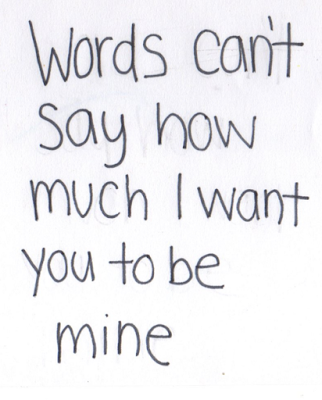 Words can't
say how
much I want
you to be
mine